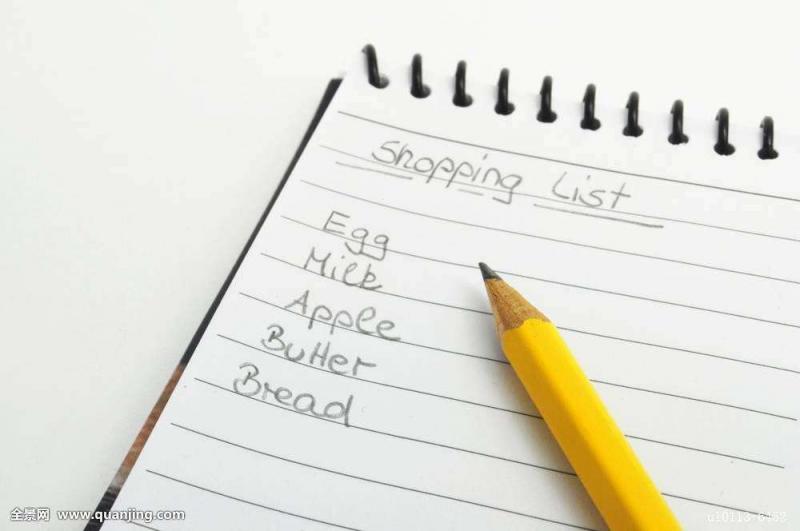 Shopping List
Egg
Milk
Apple
Butter
Bread
全景网 www.quanjing.com
ul0113-6452